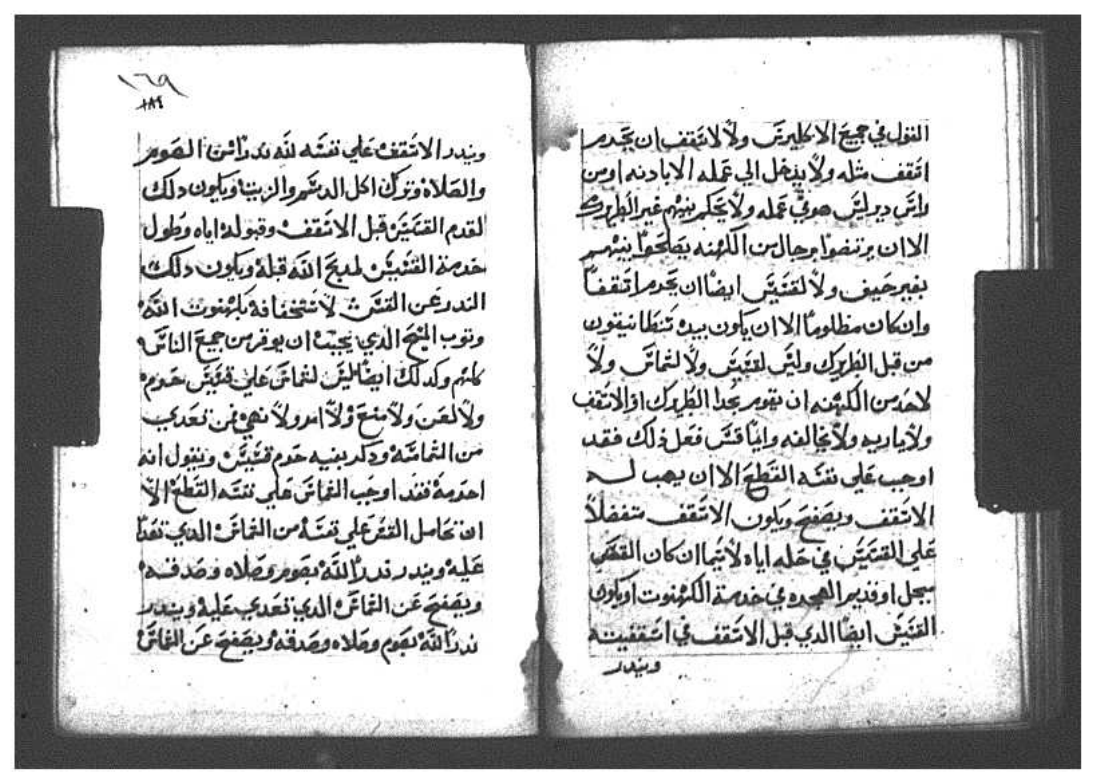 القول في جميع الاكليرس ولا لاسقف ان يحرم
اسقف مثله ولا يدخل الي عمله الا بادنه او من
راس دير ليس هو في عمله ولا يحكم بينهم غير البطريرك
الا ان يرتضوا برجال من الكهنه يصلحوا بينهم
بغير حيف ولا لقسيس ايضا ان يحرم اسقفا
وان كان مظلوما الا ان يكون بيده سطاتيقون
من قبل البطريرك وليس لقسيس ولا لشماس ولا
لاحد من الكهنه ان يقوم بحدا البطريرك او الاسقف
ولا يماريه ولا يخالفه وايما قس فعل ذلك فقد
اوجب علي نفسه القطع الا ان يهب له
الاسقف ويصفح ويكون الاسقف متفضلا
علي القسيس في حله اياه لا سيما ان كان القس
مبجل او قديم الهجره في خدمة الكهنوت او يكون
القسيس ايضا الدي قبل الاسقف في اسقفيته
ويندر
١٦٩
١٨٤
ويندر الاسقف علي نفسه لله ندرا من الصوم
والصلاة وترك اكل الدسم والزيت ويكون دلك
لقدم القسيس قبل الاسقف وقبوله اياه وطول
خدمة القسيس لمدبح الله قبله ويكون دلك
الندر عن القس لاستخفافه بكهنوت الله
وتوب المسيح الدي يجب ان يوقر من جميع الناس
كلهم وكدلك ايضا ليس لشماس علي قسيس حرم
ولا لعن ولا منع ولا امر ولا نهي فمن تعدي
من الشمامسه ودكر بفيه حرم قسيس ويقول انه
احرمه فقد اوجب الشماس علي نفسه القطع الا
ان تحامل القس علي نفسه من الشماس الدي تعدا
عليه ويندر ندرا لله بصوم وصلاه وصدقه
ويصفح عن الشماس الدي تعدي عليه ويندر
ندرا لله بصوم وصلاه وصدقه ويصفح عن الشماس